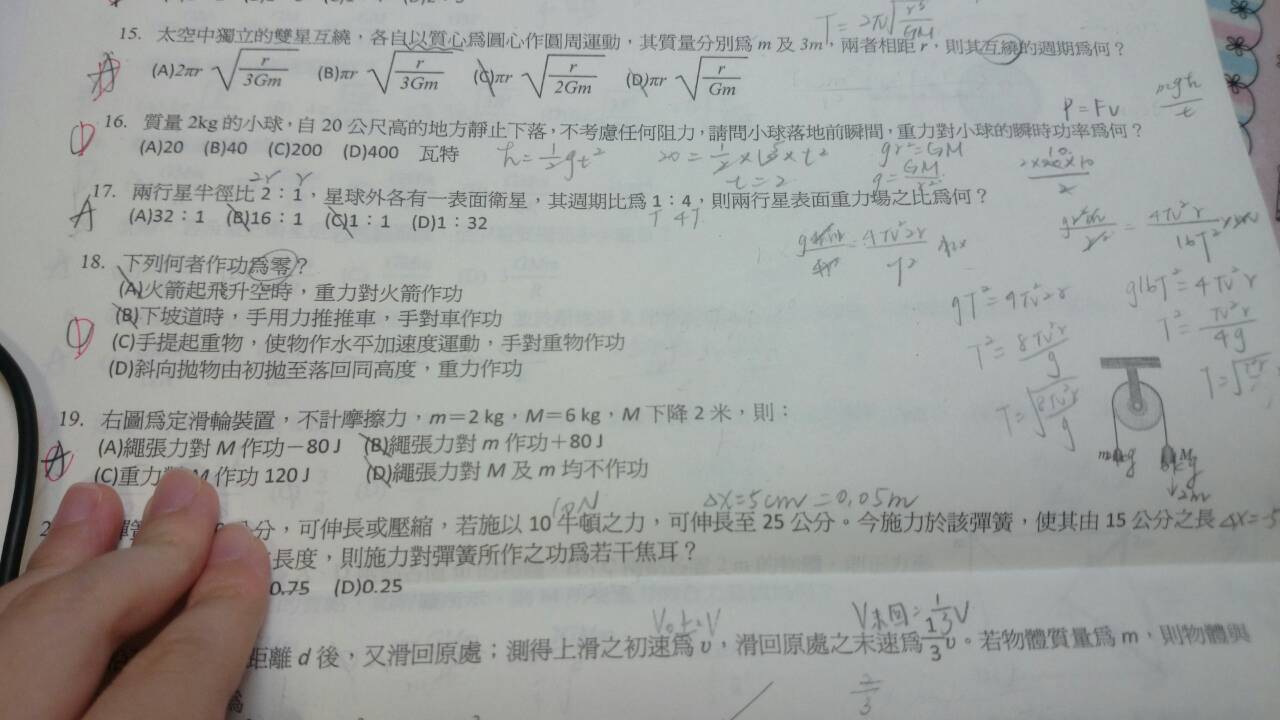 T = 2π√(r³/GM)
15. 太空中獨立的雙星互繞，各自以質心爲圓心作圓周運動，其質量分別爲 m 及 3m，兩者相距 r，則其互繞的週期爲何？
A
(A)2πr √(r/3Gm) (B)πr √(r/3Gm) (C)πr √(r/2Gm) (D)πr √(r/Gm)
P = Fv mgh/t
16. 質量 2kg 的小球，自 20 公尺高的地方靜止下落，不考慮任何阻力，請問小球落地前瞬間，重力對小球的瞬時功率爲何？
D
(A)20 (B)40 (C)200 (D)400 瓦特 h = ½gt² 20 = ½×10×t² gr² = GM
t = 2
2r r
17. 兩行星半徑比 2：1，星球外各有一表面衛星，其週期比爲 1：4，則兩行星表面重力場之比爲何？
T 4T
A
(A)32：1 (B)16：1 (C)1：1 (D)1：32
18. 下列何者作功爲零？
(A)火箭起飛升空時，重力對火箭作功
(B)下坡道時，手用力推推車，手對車作功
D
(C)手提起重物，使物作水平加速度運動，手對重物作功
(D)斜向拋物由初拋至落回同高度，重力作功
gT² = 4π²2r g16T² = 4π²r
T² = 8π²r/g T² = π²r/4g
T = √(8π²r/g)
19. 右圖爲定滑輪裝置，不計摩擦力，m＝2 kg，M＝6 kg，M 下降 2 米，則：
A
(A)繩張力對 M 作功－80 J (B)繩張力對 m 作功＋80 J
(C)重力 M 作功 120 J (D)繩張力對 M 及 m 均不作功
2m
10N Δx=5cm = 0.05m
公分，可伸長或壓縮，若施以 10 牛頓之力，可伸長至 25 公分。今施力於該彈簧，使其由 15 公分之長
長度，則施力對彈簧所作之功爲若干焦耳？
0.75 (D)0.25
距離 d 後，又滑回原處；測得上滑之初速爲 υ，滑回原處之末速爲 1/3 υ。若物體質量爲 m，則物體與
2/3